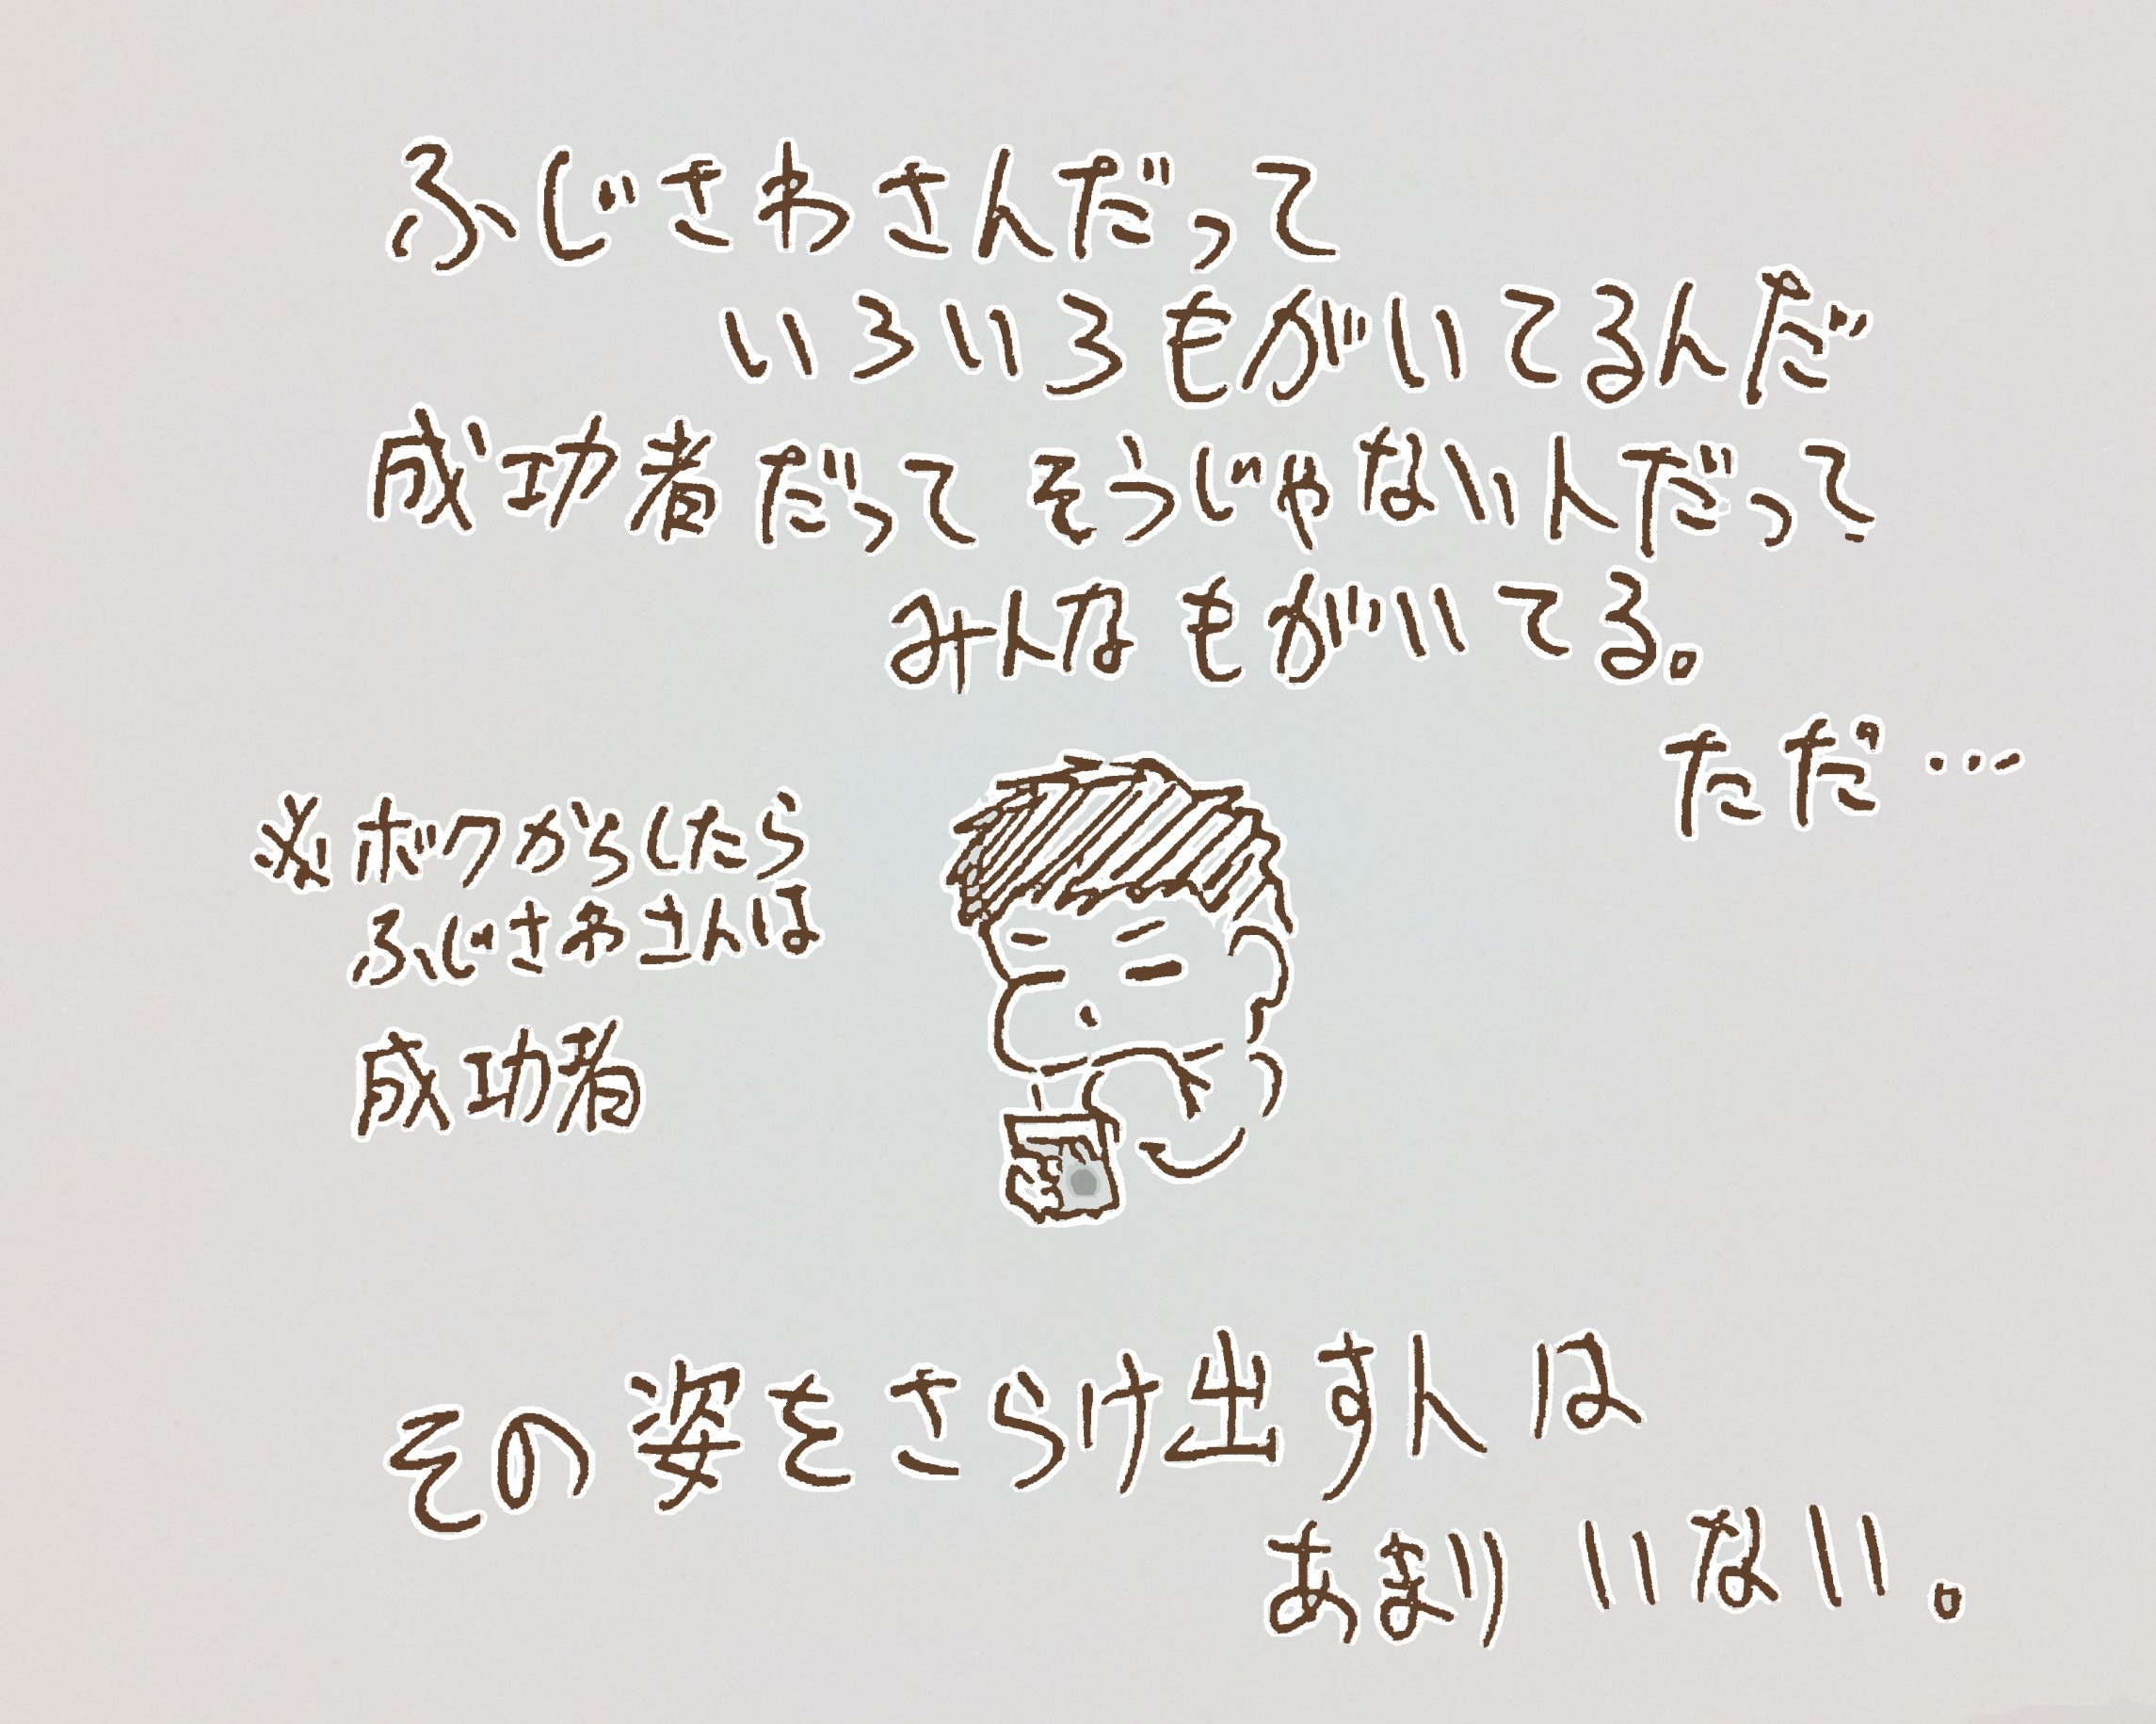 ふじさわさんだって
いろいろもがいてるんだ
成功者だって そうじゃない人だって
みんなもがいてる。
ただ…
※ボクからしたら
ふじさわさんは
成功者
その姿をさらけ出す人は
あまりいない。